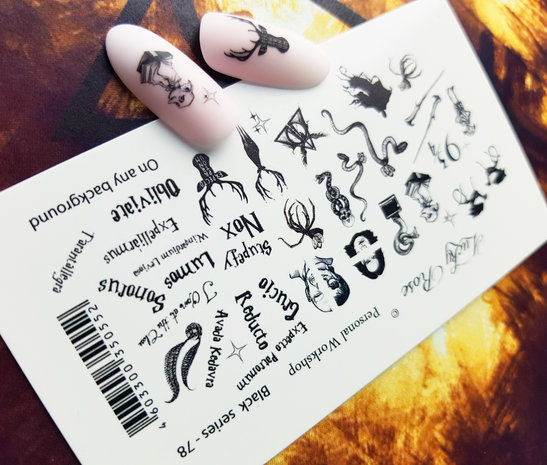 Lucky Rose
© Personal Workshop
Black series - 78
On any background
9¾
Obliviate
Expelliarmus
Wingardium Leviosa
Nox
Stupefy
Tarantallegra
Sonorus
Lumos
Crucio
Reducto
Avada Kedavra
Expecto Patronum
4603300350552